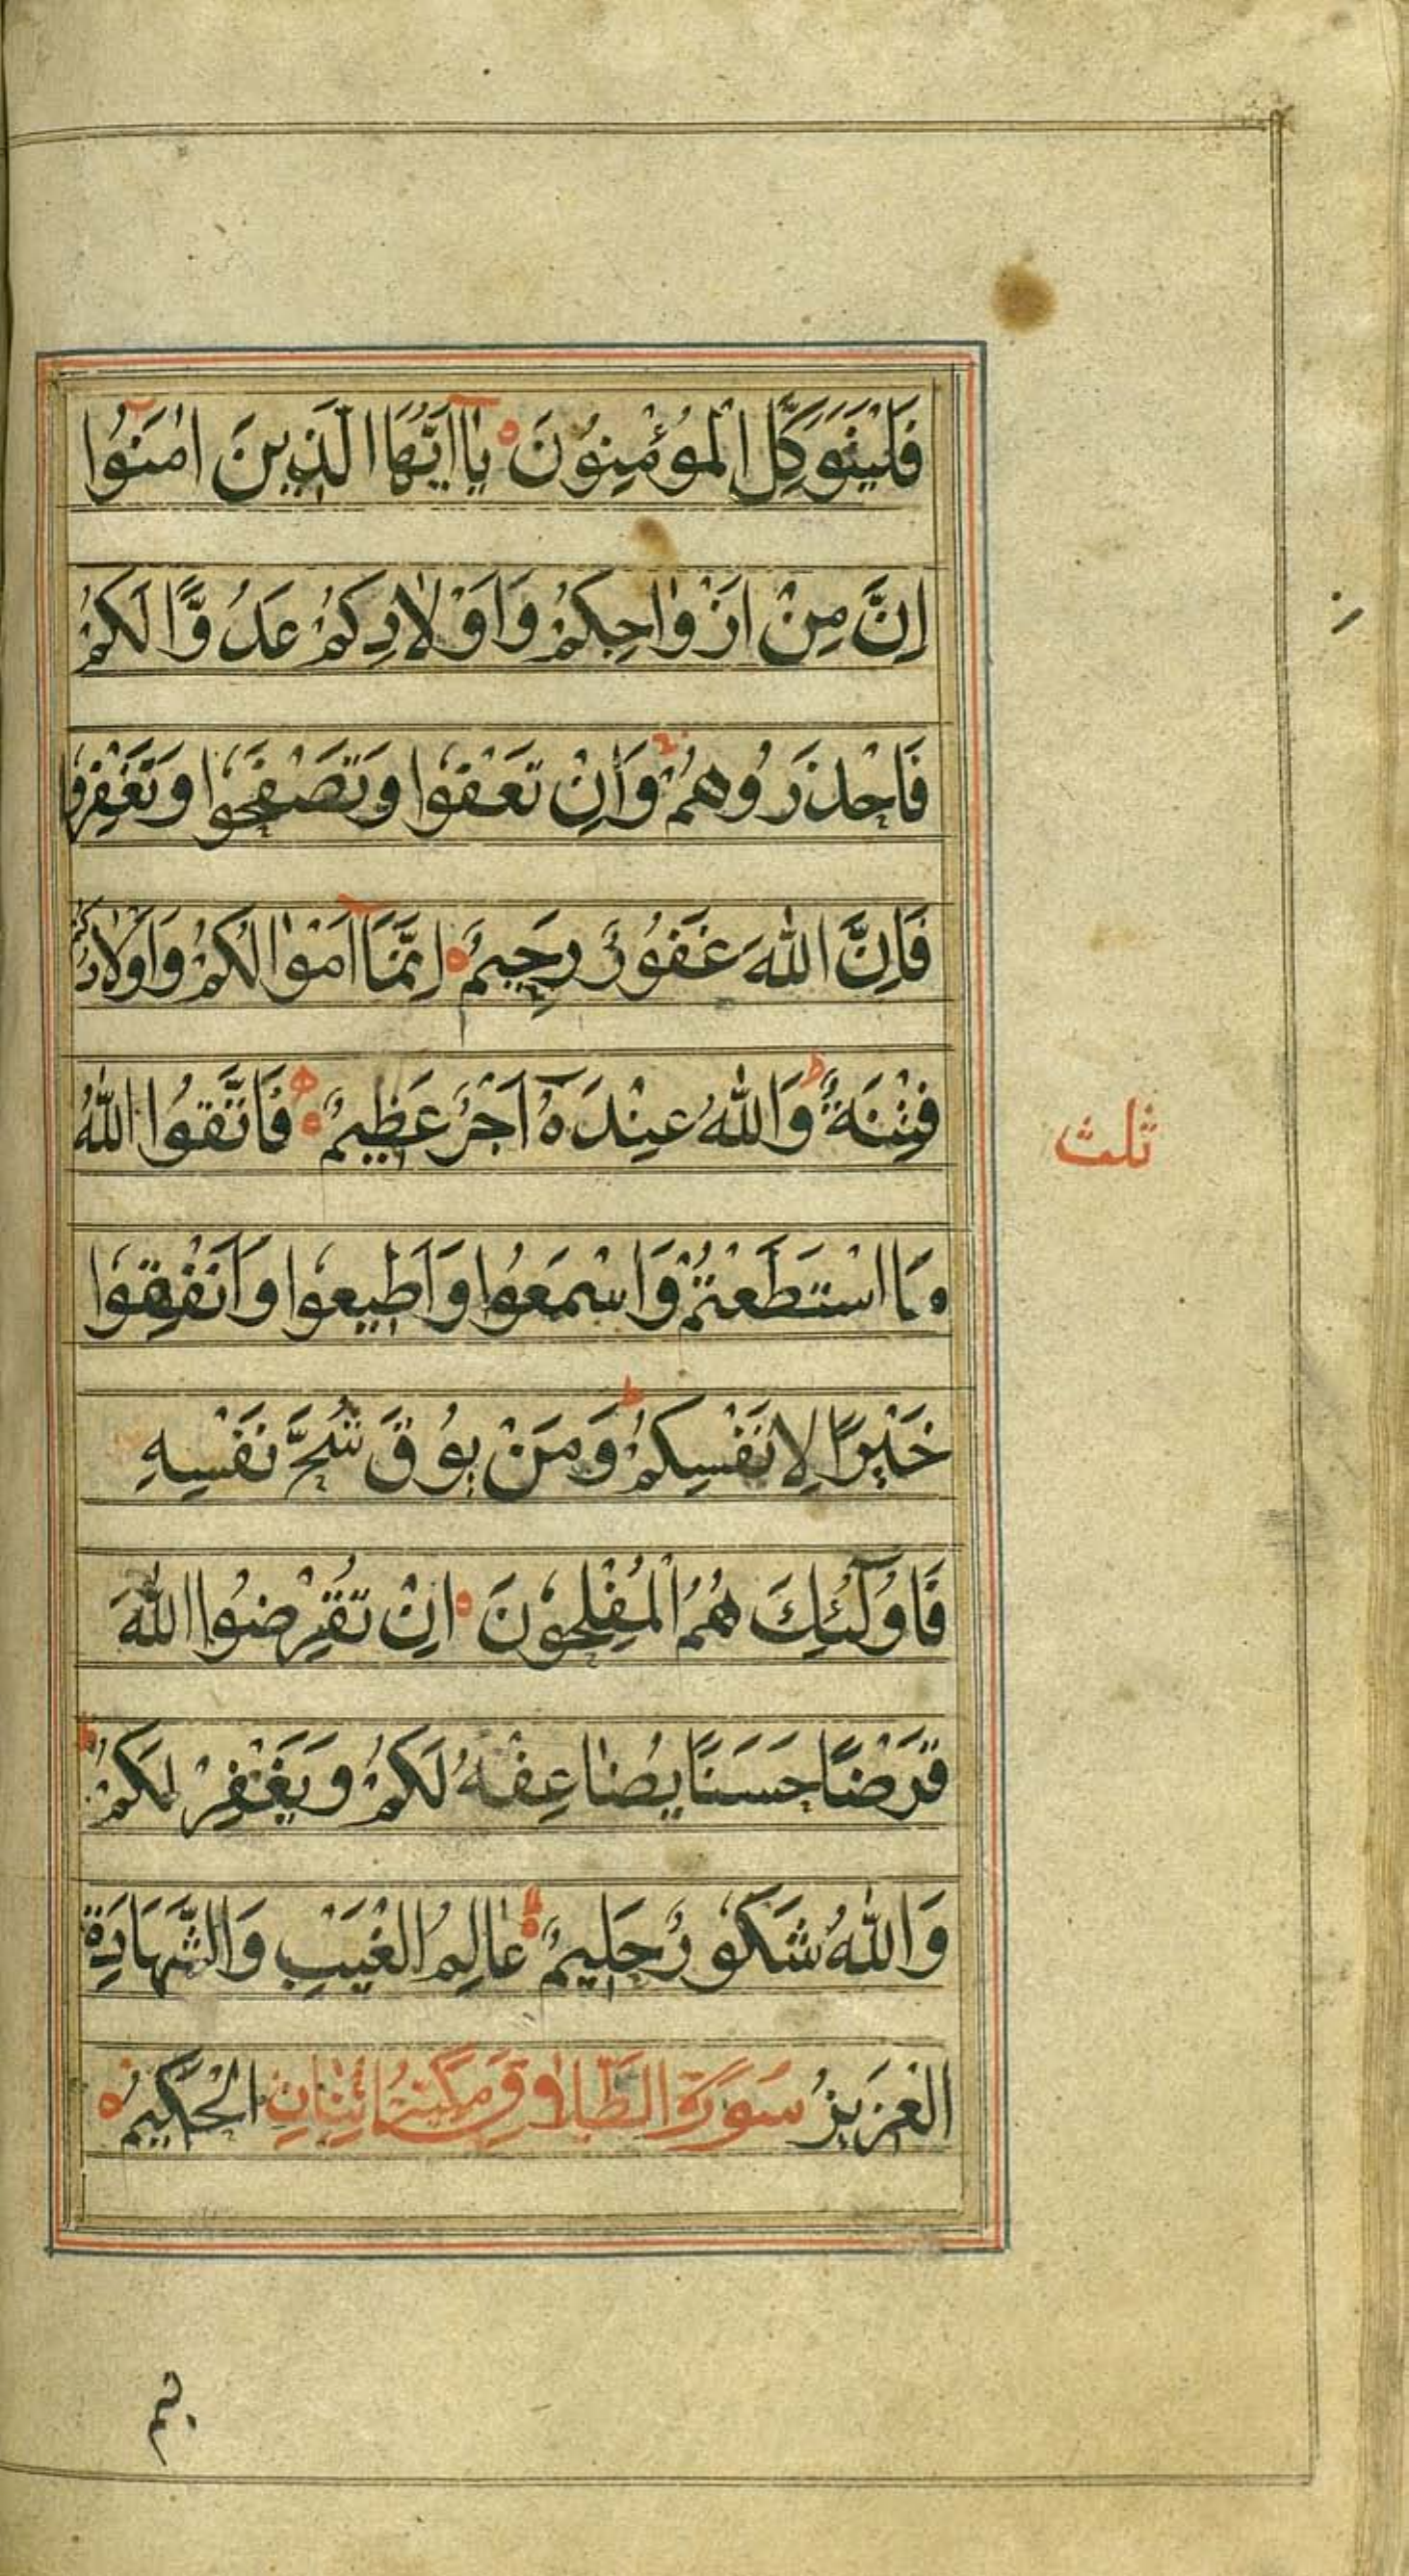 فَلْيَتَوَكَّلِ الْمُؤْمِنُونَ يٰآاَيُّهَا الَّذِينَ اٰمَنُوٓا
اِنَّ مِنْ اَزْوٰاجِكُمْ وَاَوْلٰادِكُمْ عَدُوًّا لَكُمْ
فَاحْذَرُوهُمْ وَاِنْ تَعْفُوا وَتَصْفَحُوا وَتَغْفِرُوا
فَاِنَّ اللّٰهَ غَفُورٌ رَحِيمٌ اِنَّمَآ اَمْوٰالُكُمْ وَاَوْلٰادُكُمْ
فِتْنَةٌ ط وَاللّٰهُ عِنْدَهُٓ اَجْرٌ عَظِيمٌ فَاتَّقُوا اللّٰهَ
مَا اسْتَطَعْتُمْ وَاسْمَعُوا وَاَطِيعُوا وَاَنْفِقُوا
خَيْرًا لِاَنْفُسِكُمْ ط وَمَنْ يُوقَ شُحَّ نَفْسِهِ
فَاُولٰٓئِكَ هُمُ الْمُفْلِحُونَ اِنْ تُقْرِضُوا اللّٰهَ
قَرْضًا حَسَنًا يُضٰاعِفْهُ لَكُمْ وَيَغْفِرْ لَكُمْ ط
وَاللّٰهُ شَكُورٌ حَلِيمٌ عٰالِمُ الْغَيْبِ وَالشَّهَادَةِ
الْعَزِيزُ سُورَةُ الطَّلٰاقِ الْحَكِيمُ
ثلث